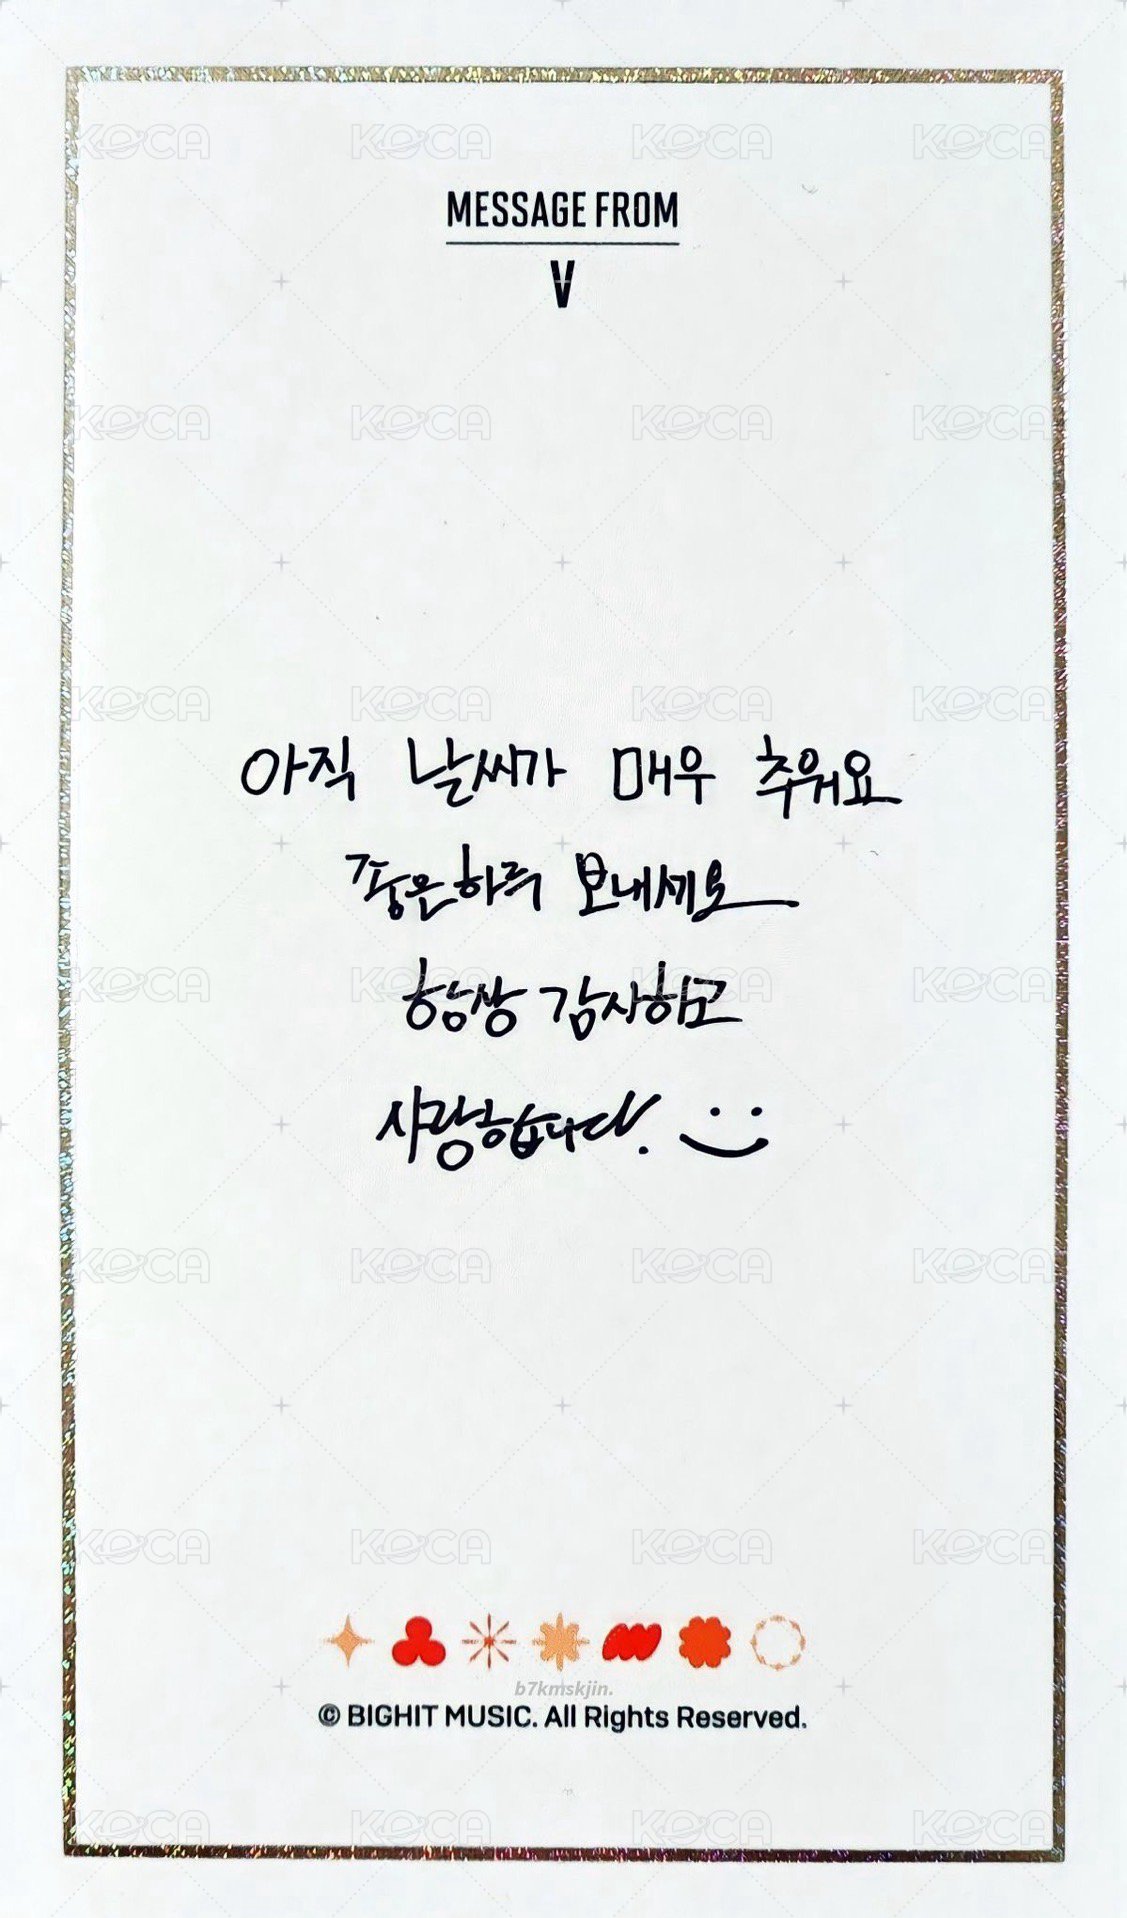 MESSAGE FROM
V
아직 날씨가 매우 추워요
좋은하루 보내세요
항상 감사하고
사랑합니다. :)
b7kmskjin.
© BIGHIT MUSIC. All Rights Reserved.
KOCA